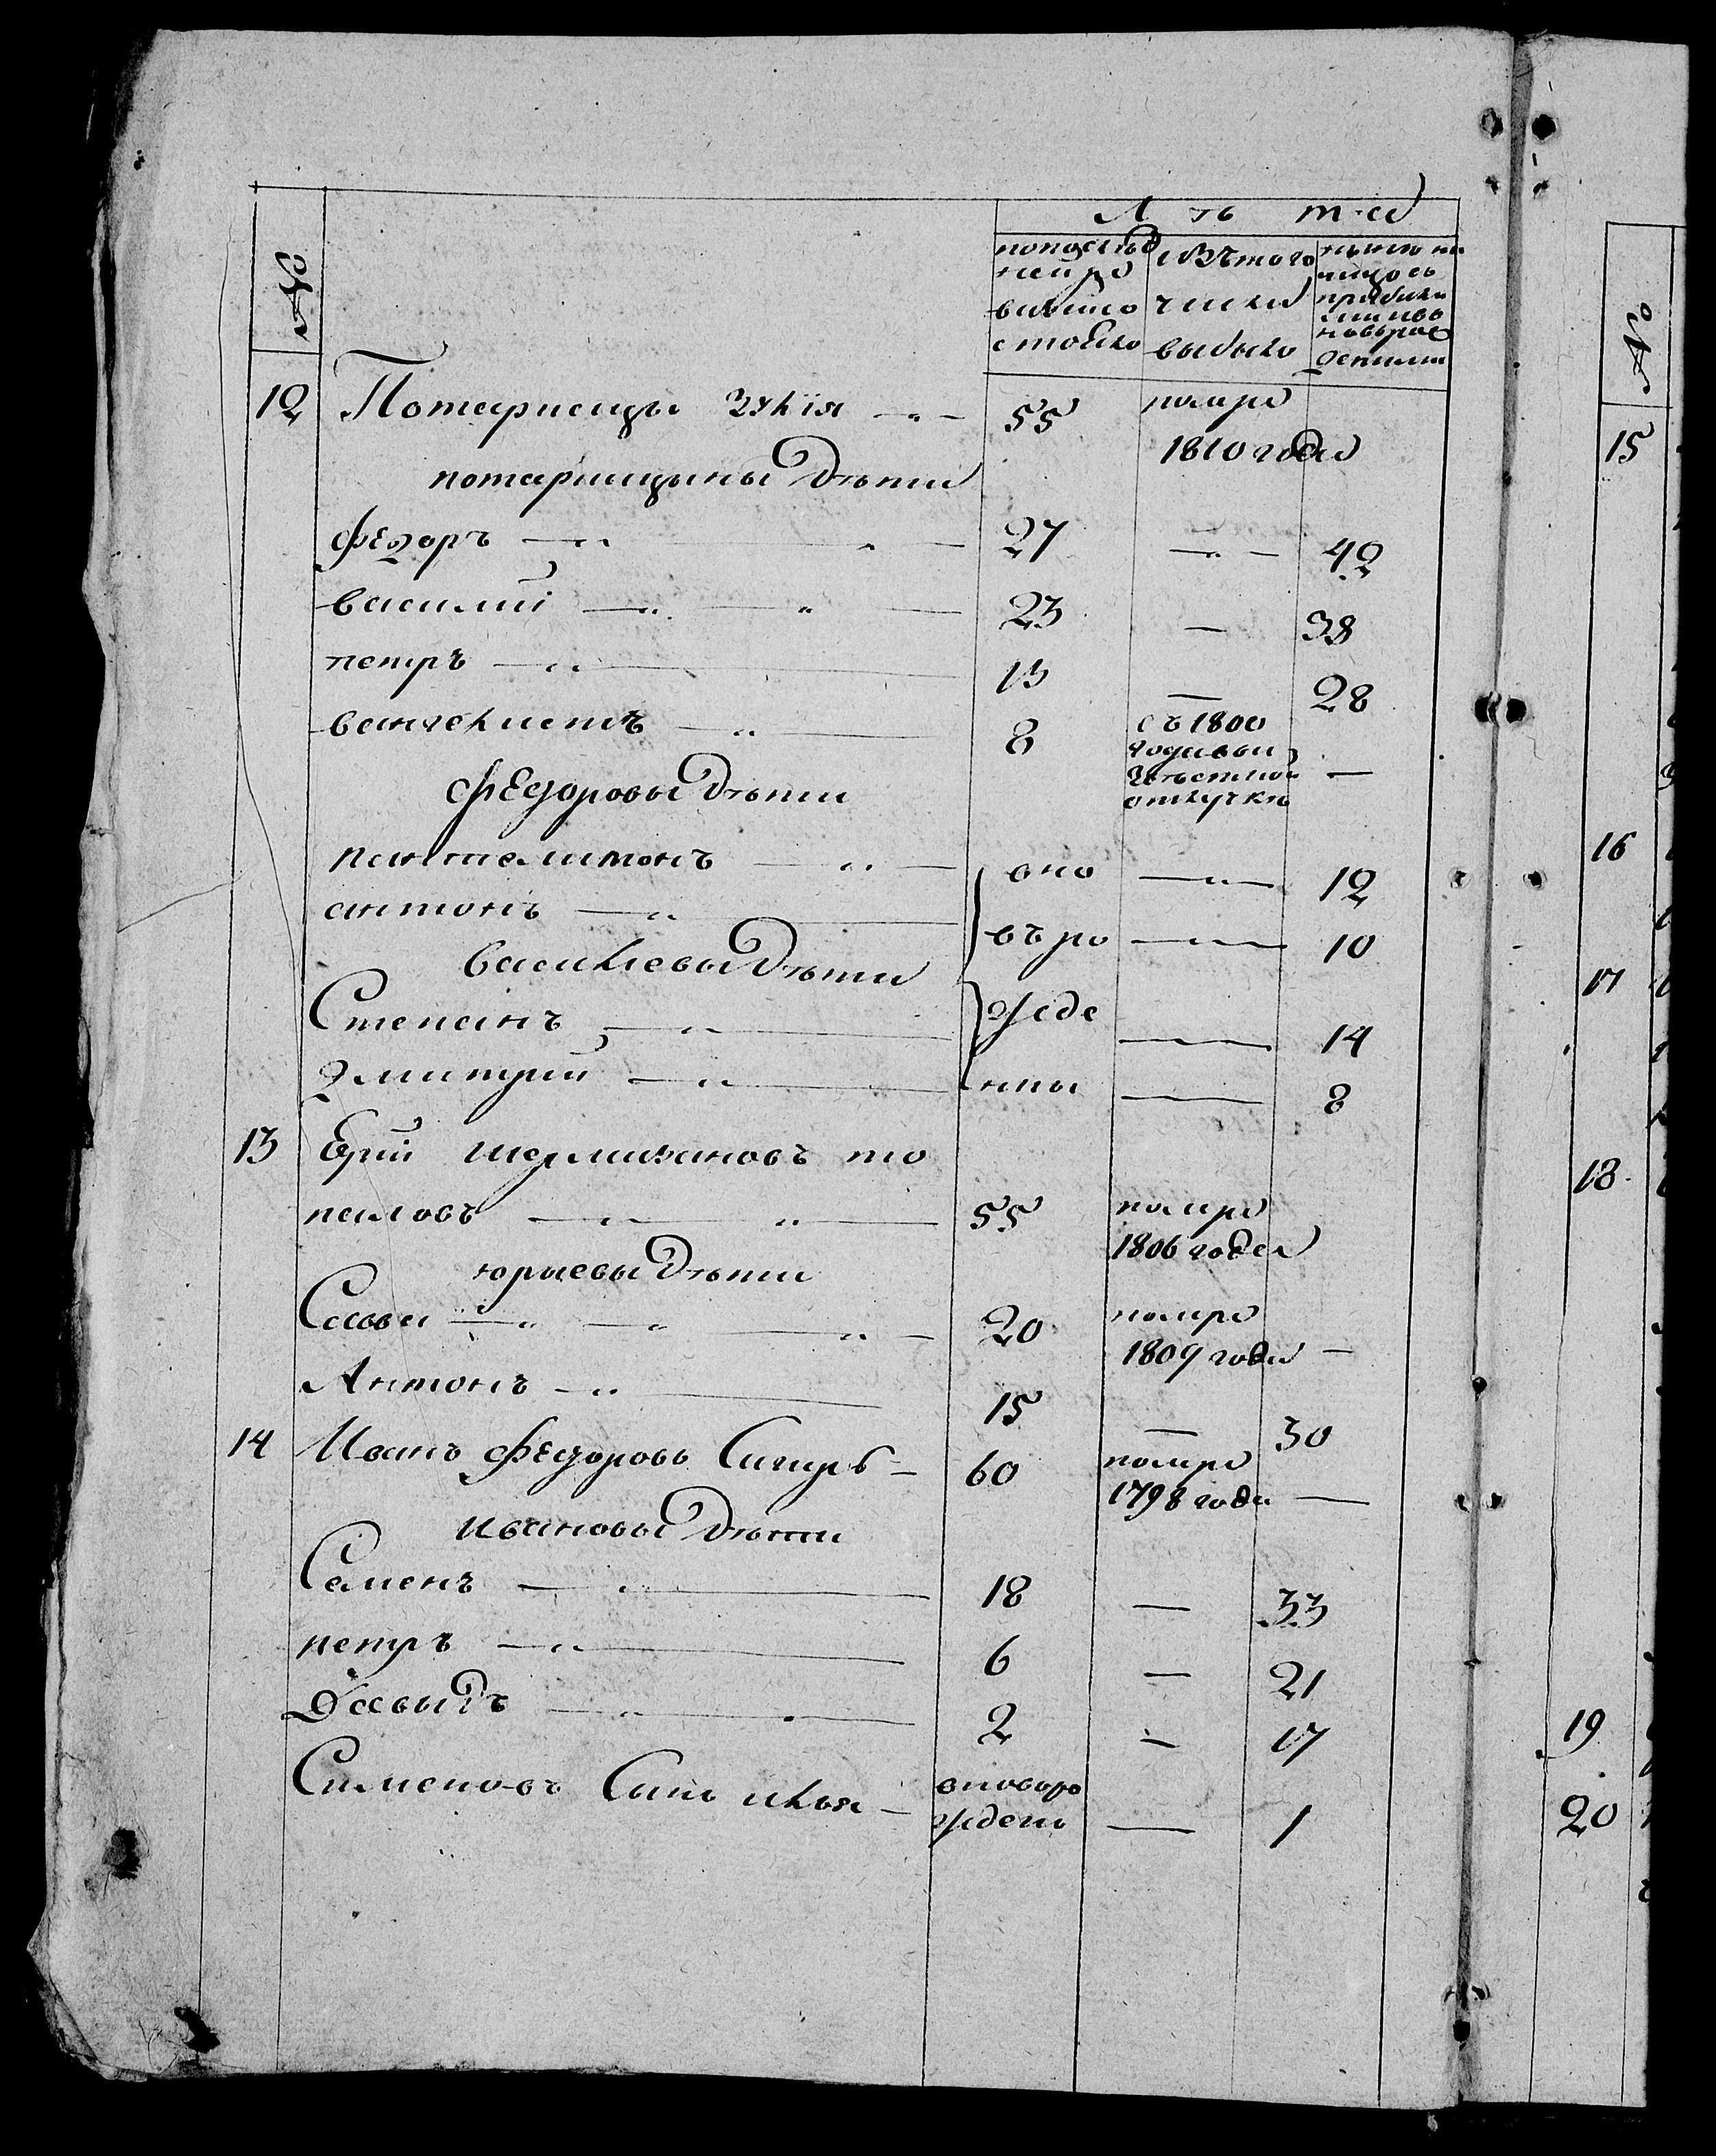 №
Лѣта
попослѣд
ней ре
визiи со
стояло
изътого
числа
выбыло
ныне на
лицось
прибыли
новорож
денными
12 Потапи 55 помре
1810 года
дѣти
федоръ 27 42
василий 23 38
петръ 13 28
8 съ 1800
года
отлучке
Федоровы дѣти
пантелимонъ вно 12
антонъ въро 10
Васильевы дѣти
Степанъ жде 14
дмитрий нны 8
13 Юрий
55 помре
1806 года
юрьевы дѣти
Савва 20 помре
1809 года
Антонъ 15 30
14 Иванъ федоровъ 60 помре
1798 года
ивановы дѣти
Семенъ 18 33
петръ 6 21
Давыдъ 2 17
Сименовъ Сынъ илья вноворо
жденъ 1
№
15
16
17
18
19
20